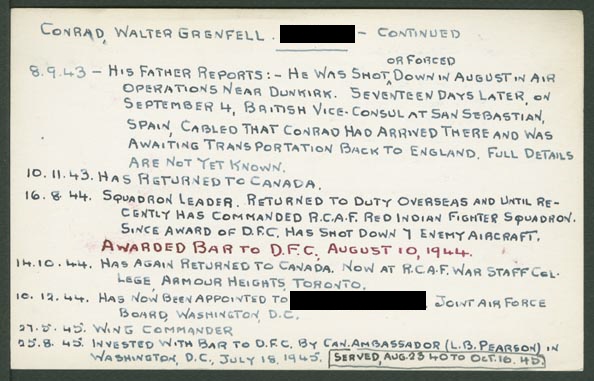 CONRAD, WALTER GRENFELL. - CONTINUED
OR FORCED
8.9.43 - HIS FATHER REPORTS:- HE WAS SHOT, DOWN IN AUGUST IN AIR
OPERATIONS NEAR DUNKIRK. SEVENTEEN DAYS LATER, ON
SEPTEMBER 4, BRITISH VICE-CONSUL AT SAN SEBASTIAN,
SPAIN, CABLED THAT CONRAD HAD ARRIVED THERE AND WAS
AWAITING TRANSPORTATION BACK TO ENGLAND. FULL DETAILS
ARE NOT YET KNOWN.
10.11.43. HAS RETURNED TO CANADA.
16.8.44. SQUADRON LEADER. RETURNED TO DUTY OVERSEAS AND UNTIL RE-
CENTLY HAS COMMANDED R.C.A.F. RED INDIAN FIGHTER SQUADRON.
SINCE AWARD OF D.F.C. HAS SHOT DOWN 7 ENEMY AIRCRAFT.
AWARDED BAR TO D.F.C. AUGUST 10, 1944.
14.10.44. HAS AGAIN RETURNED TO CANADA. NOW AT R.C.A.F. WAR STAFF COL-
LEGE, ARMOUR HEIGHTS, TORONTO.
10.12.44. HAS NOW BEEN APPOINTED TO , JOINT AIR FORCE
BOARD, WASHINGTON, D.C.
27.5.45. WING COMMANDER
25.8.45. INVESTED WITH BAR TO D.F.C. BY CAN. AMBASSADOR (L.B. PEARSON) IN
WASHINGTON, D.C., JULY 18, 1945. SERVED, AUG. 23 40 TO OCT. 16. 45.